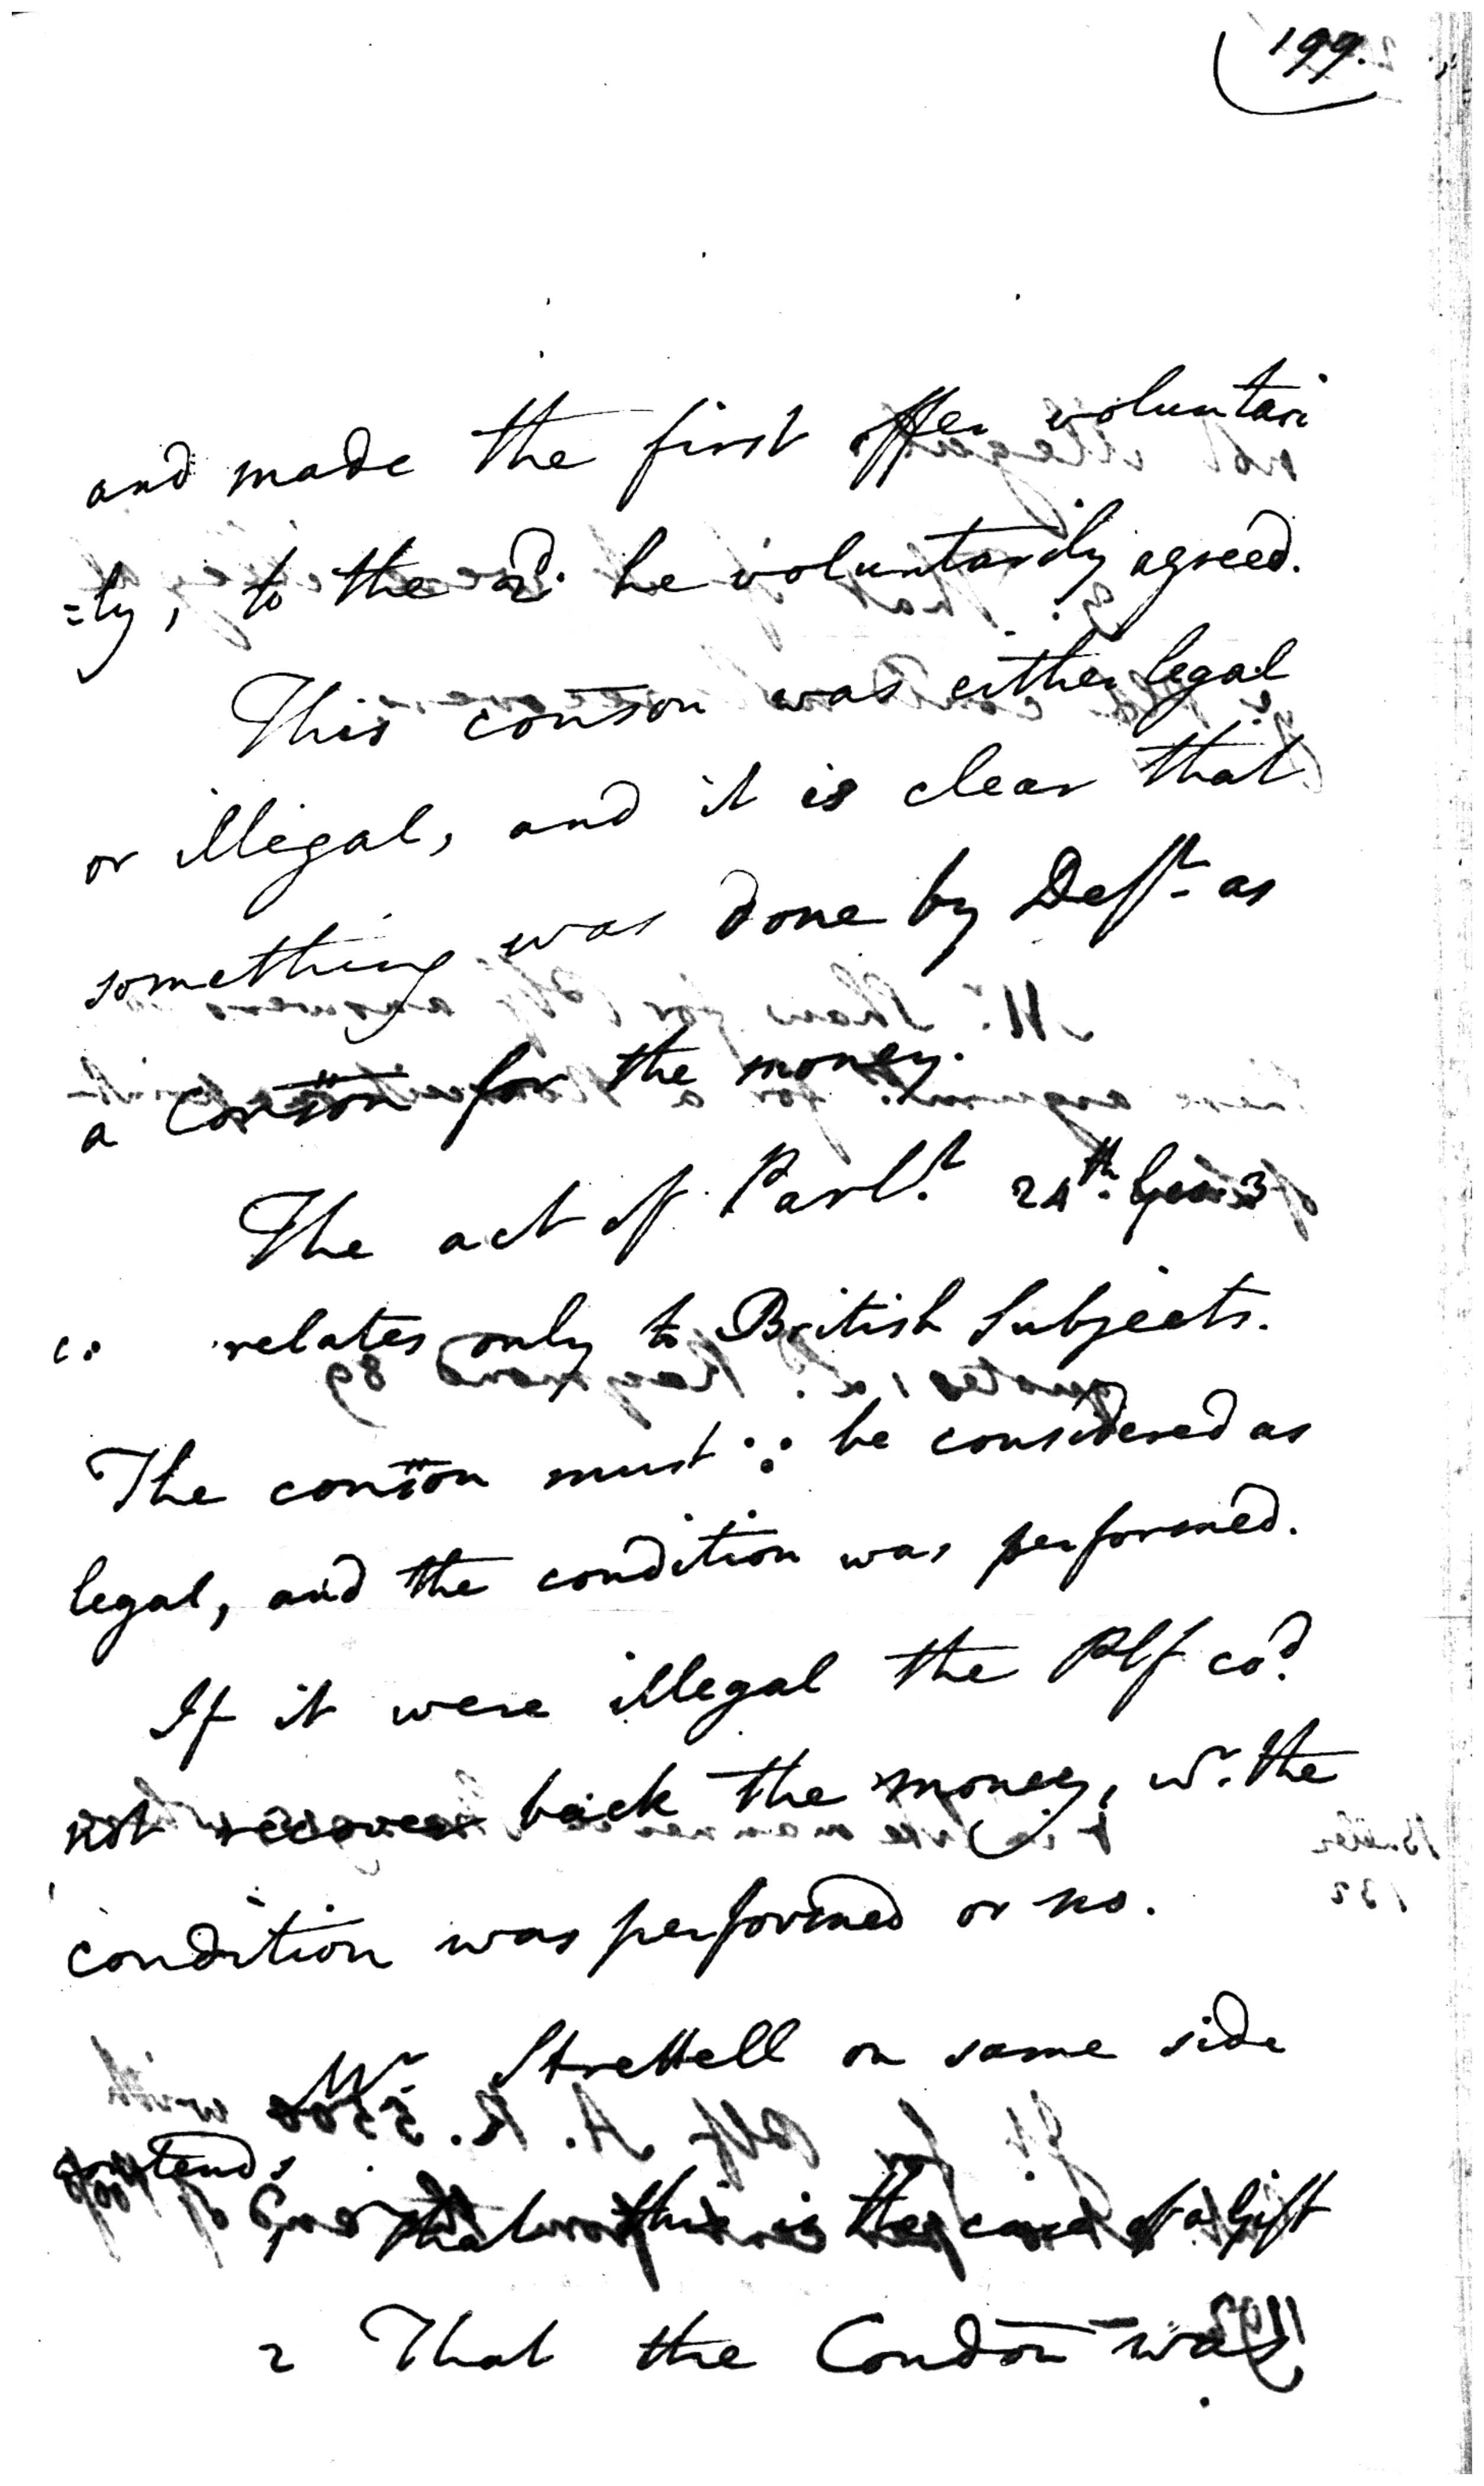 199.
and made the first offer voluntari
=ly, to the 2d. he voluntarily agreed.
This conson was either legal
or illegal, and it is clear that
something was done by Deft. as
a Conson for the money.
The act of Parlt. 24th. Geo. 3
c: relates only to British Subjects.
The conson must ∵ be considered as
legal, and the condition was performed.
If it were illegal the Plf cod.
not recover back the money, wr. the
condition was performed or no.
Mr Strettell on same side
contends
that this is the case of a Gift
2 That the Condon was